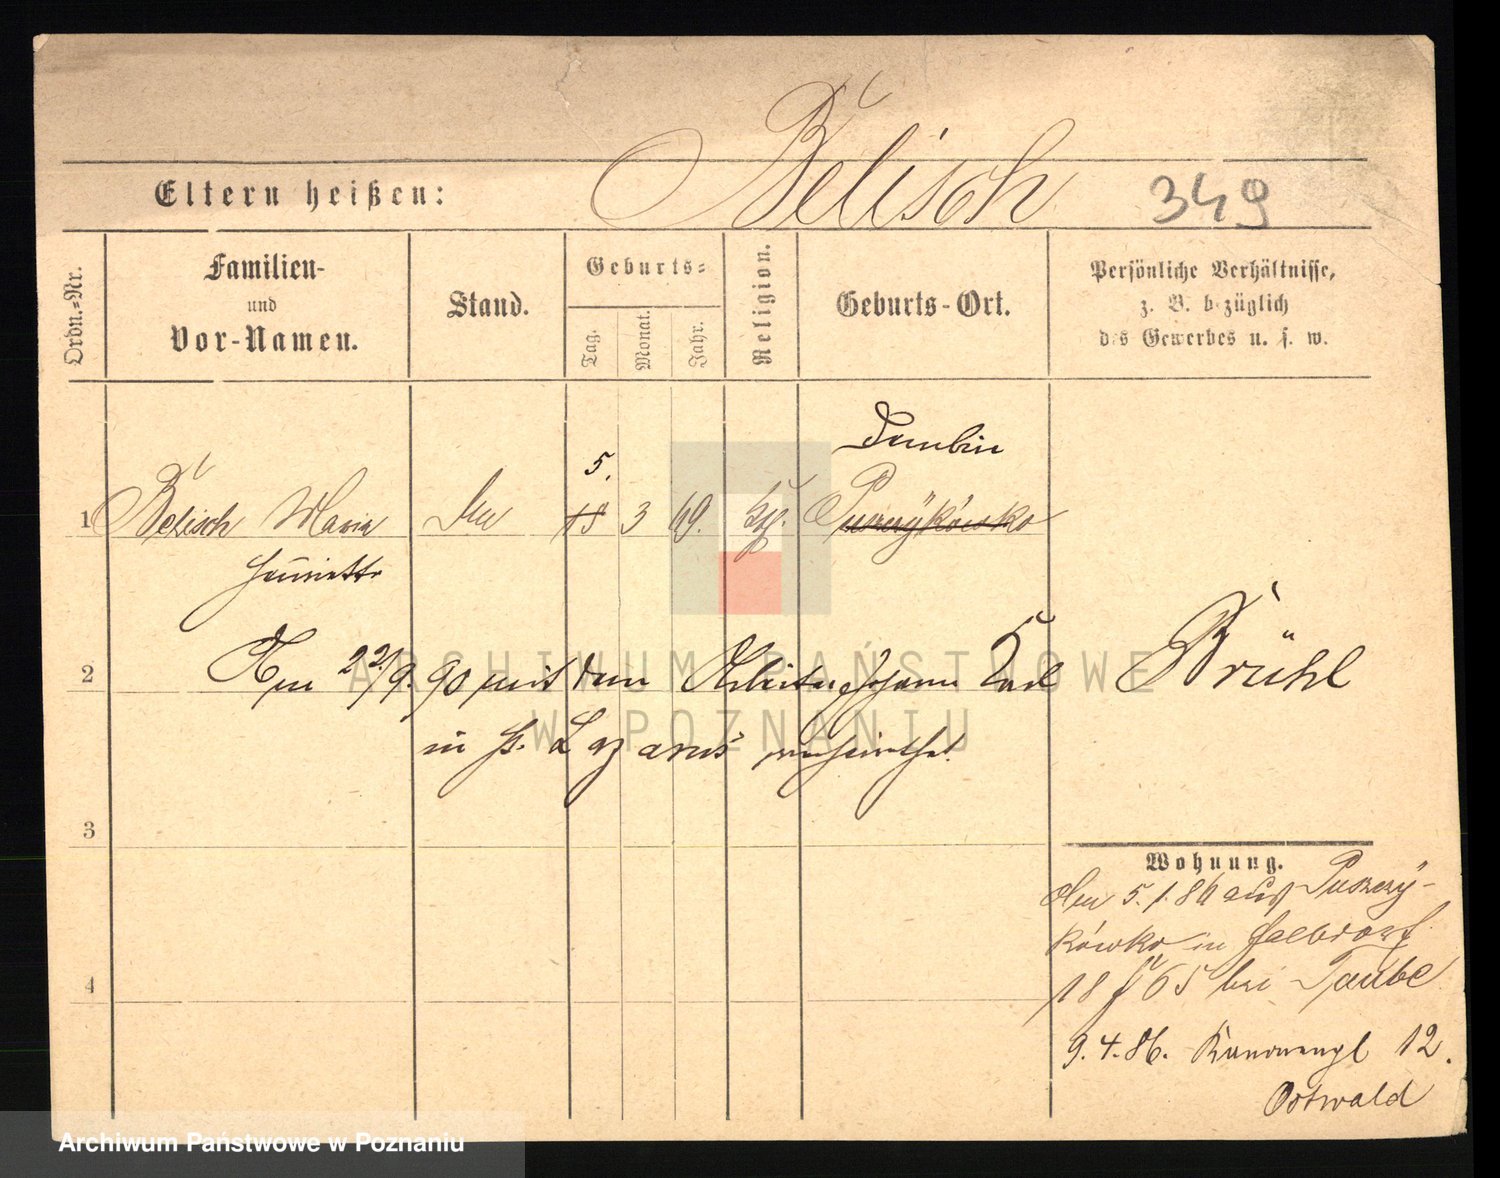 Belisch
Eltern heißen: 349
Ordn.-Nr.
Familien-
und
Vor-Namen.
Stand.
Geburts-
Tag.
Monat.
Jahr.
Religion.
Geburts-Ort.
Persönliche Verhältnisse,
z. B. bezüglich
des Gewerbes u. s. w.
Dembin
5.
1 Belisch Maria 18 3 69. Puszczykówko
Henriette
2 Am 22/9. 90 mit dem Arbeiter Johann Karl Brühl
in St. Lazarus verheirathet.
3
Wohnung.
Den 5.1.86 aus Puszczy-
kówko in Halbdorf
18 65 bei Taube
4
9.4.86. 12.
Ostwald
ARCHIWUM PAŃSTWOWE
W POZNANIU
Archiwum Państwowe w Poznaniu